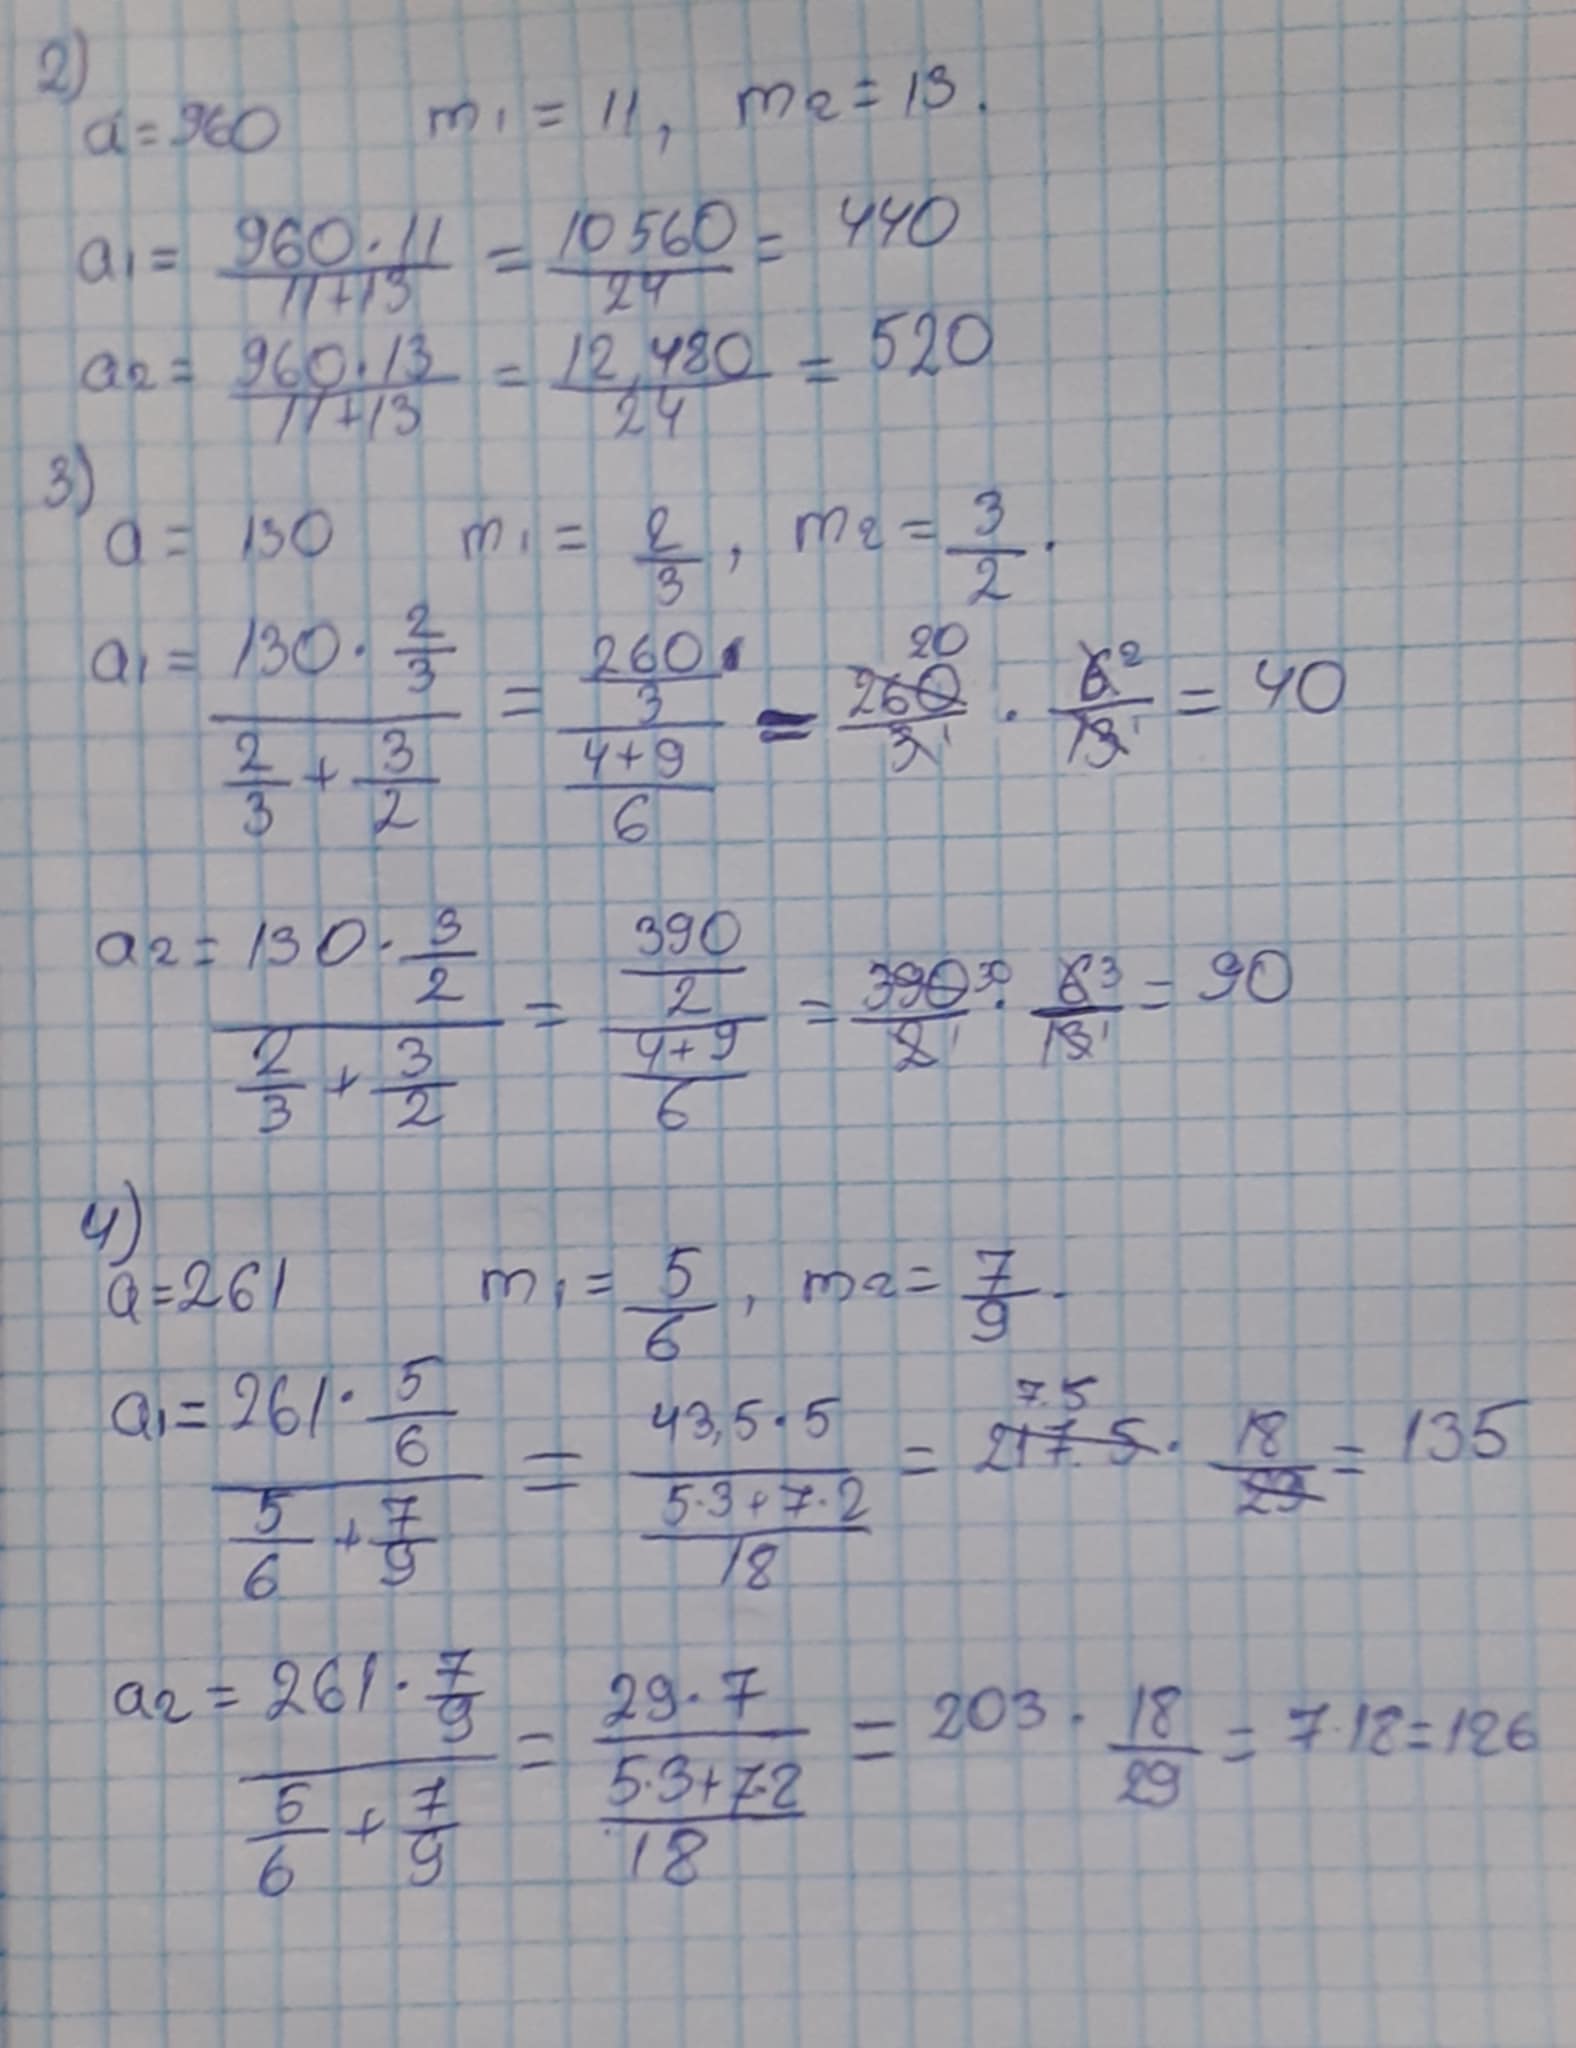 2)
a = 960 m₁ = 11, m₂ = 13.
a₁ = (960·11)/(11+13) = 10560/24 = 440
a₂ = (960·13)/(11+13) = 12,480/24 = 520
3)
a = 130 m₁ = 2/3, m₂ = 3/2.
a₁ = (130·2/3)/(2/3 + 3/2) = (260/3)/((4+9)/6) = 260 20/3 1 · 6 2/13 1 = 40
a₂ = (130·3/2)/(2/3 + 3/2) = (390/2)/((4+9)/6) = 390 30/2 1 · 6 3/13 1 = 90
4)
a = 261 m₁ = 5/6, m₂ = 7/9.
a₁ = (261·5/6)/(5/6 + 7/9) = (43,5·5)/((5·3+7·2)/18) = 217.5 7.5 · 18/29 = 135
a₂ = (261·7/9)/(5/6 + 7/9) = (29·7)/((5·3+7·2)/18) = 203 · 18/29 = 7·18 = 126